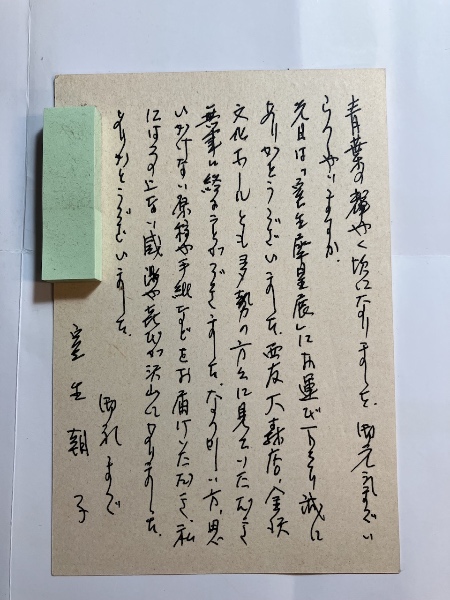 青葉の輝やく頃になりました。御元気でい
らっしゃいますか。
先日は「室生犀星展」にお運び下さり誠に
ありがとうございました。西友大森店、金沢
文化ホールとも多勢の方々に見ていただき
無事に終ることができました。なつかしい方、思
いがけない原稿や手紙などをお届けいただき、私
にはこの上ない感激や喜びが沢山にありました。
ありがとうございました。
御礼まで
室生朝子